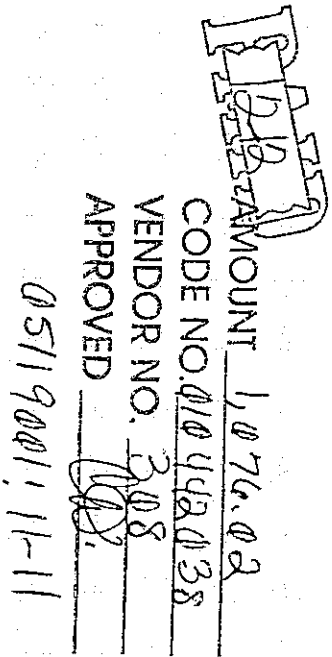 AMOUNT 1,076.02
CODE NO. 010442038
VENDOR NO. 308
APPROVED
05119001; 11-11